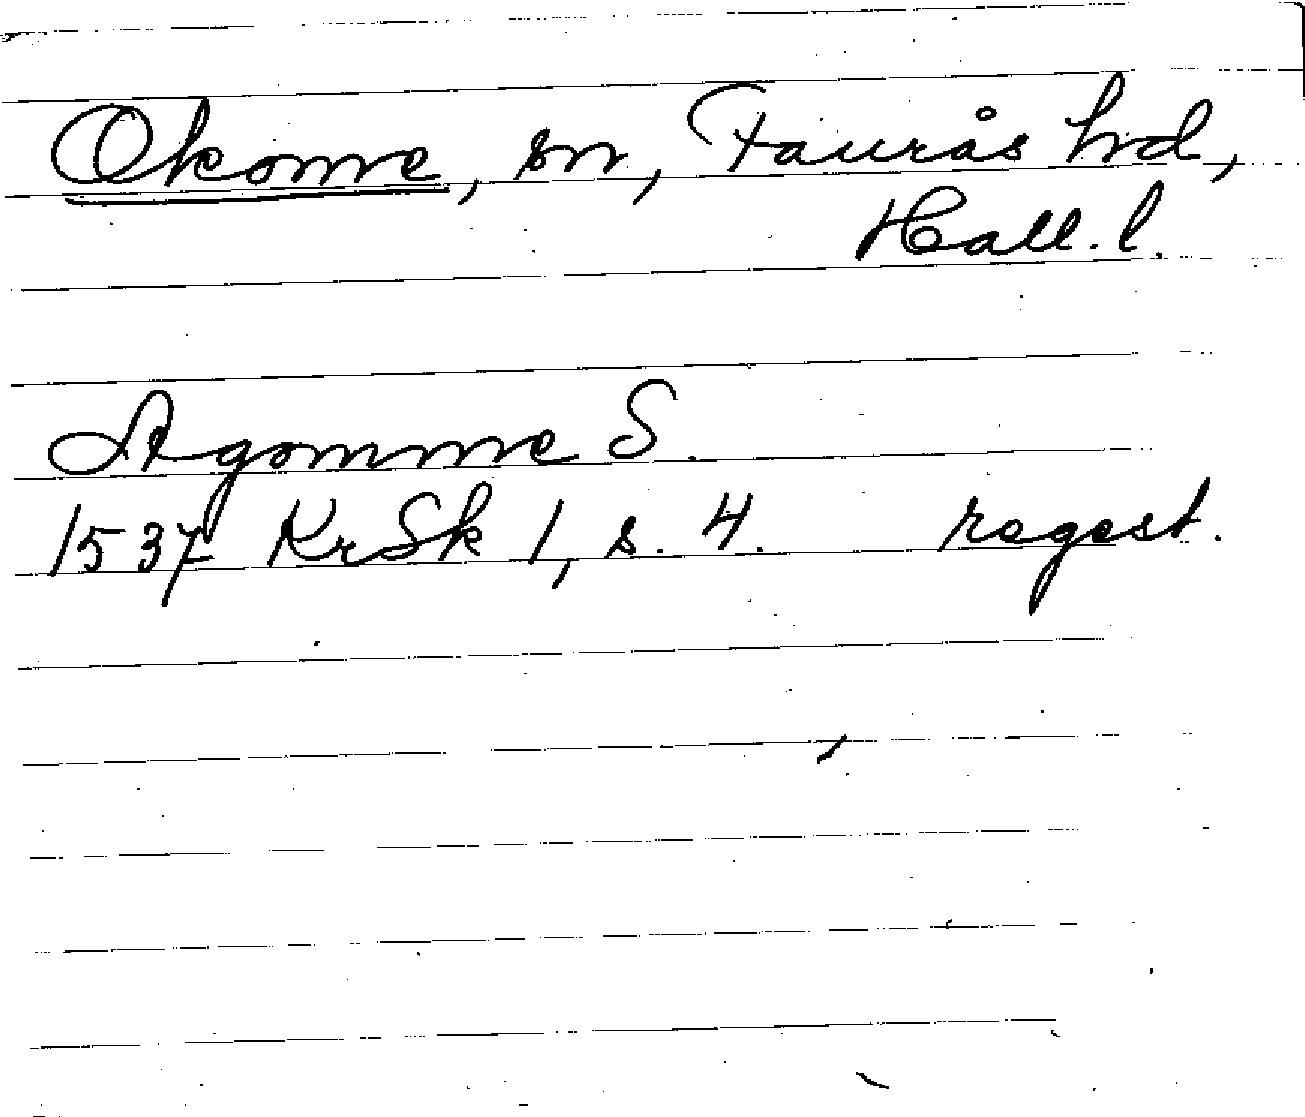 Okome, sn, Faurås hd,
Hall. l.
Agomme S.
1537 KrSk 1, s. 4. regest.